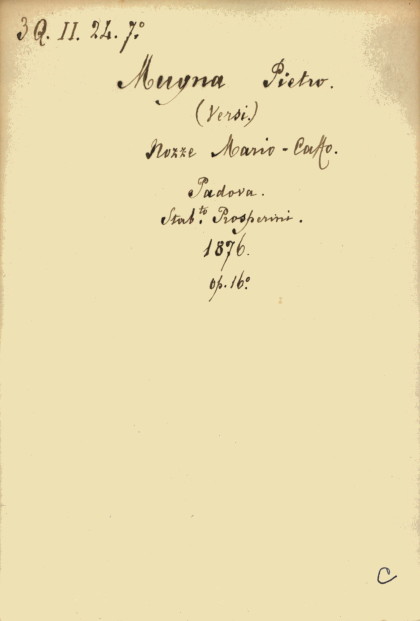 3 Q. II. 24. 7.º
Mugna Pietro.
(Versi.)
Nozze Mario - Caffo.
Padova.
Stab.to Prosperini.
1876.
op. 16º
C